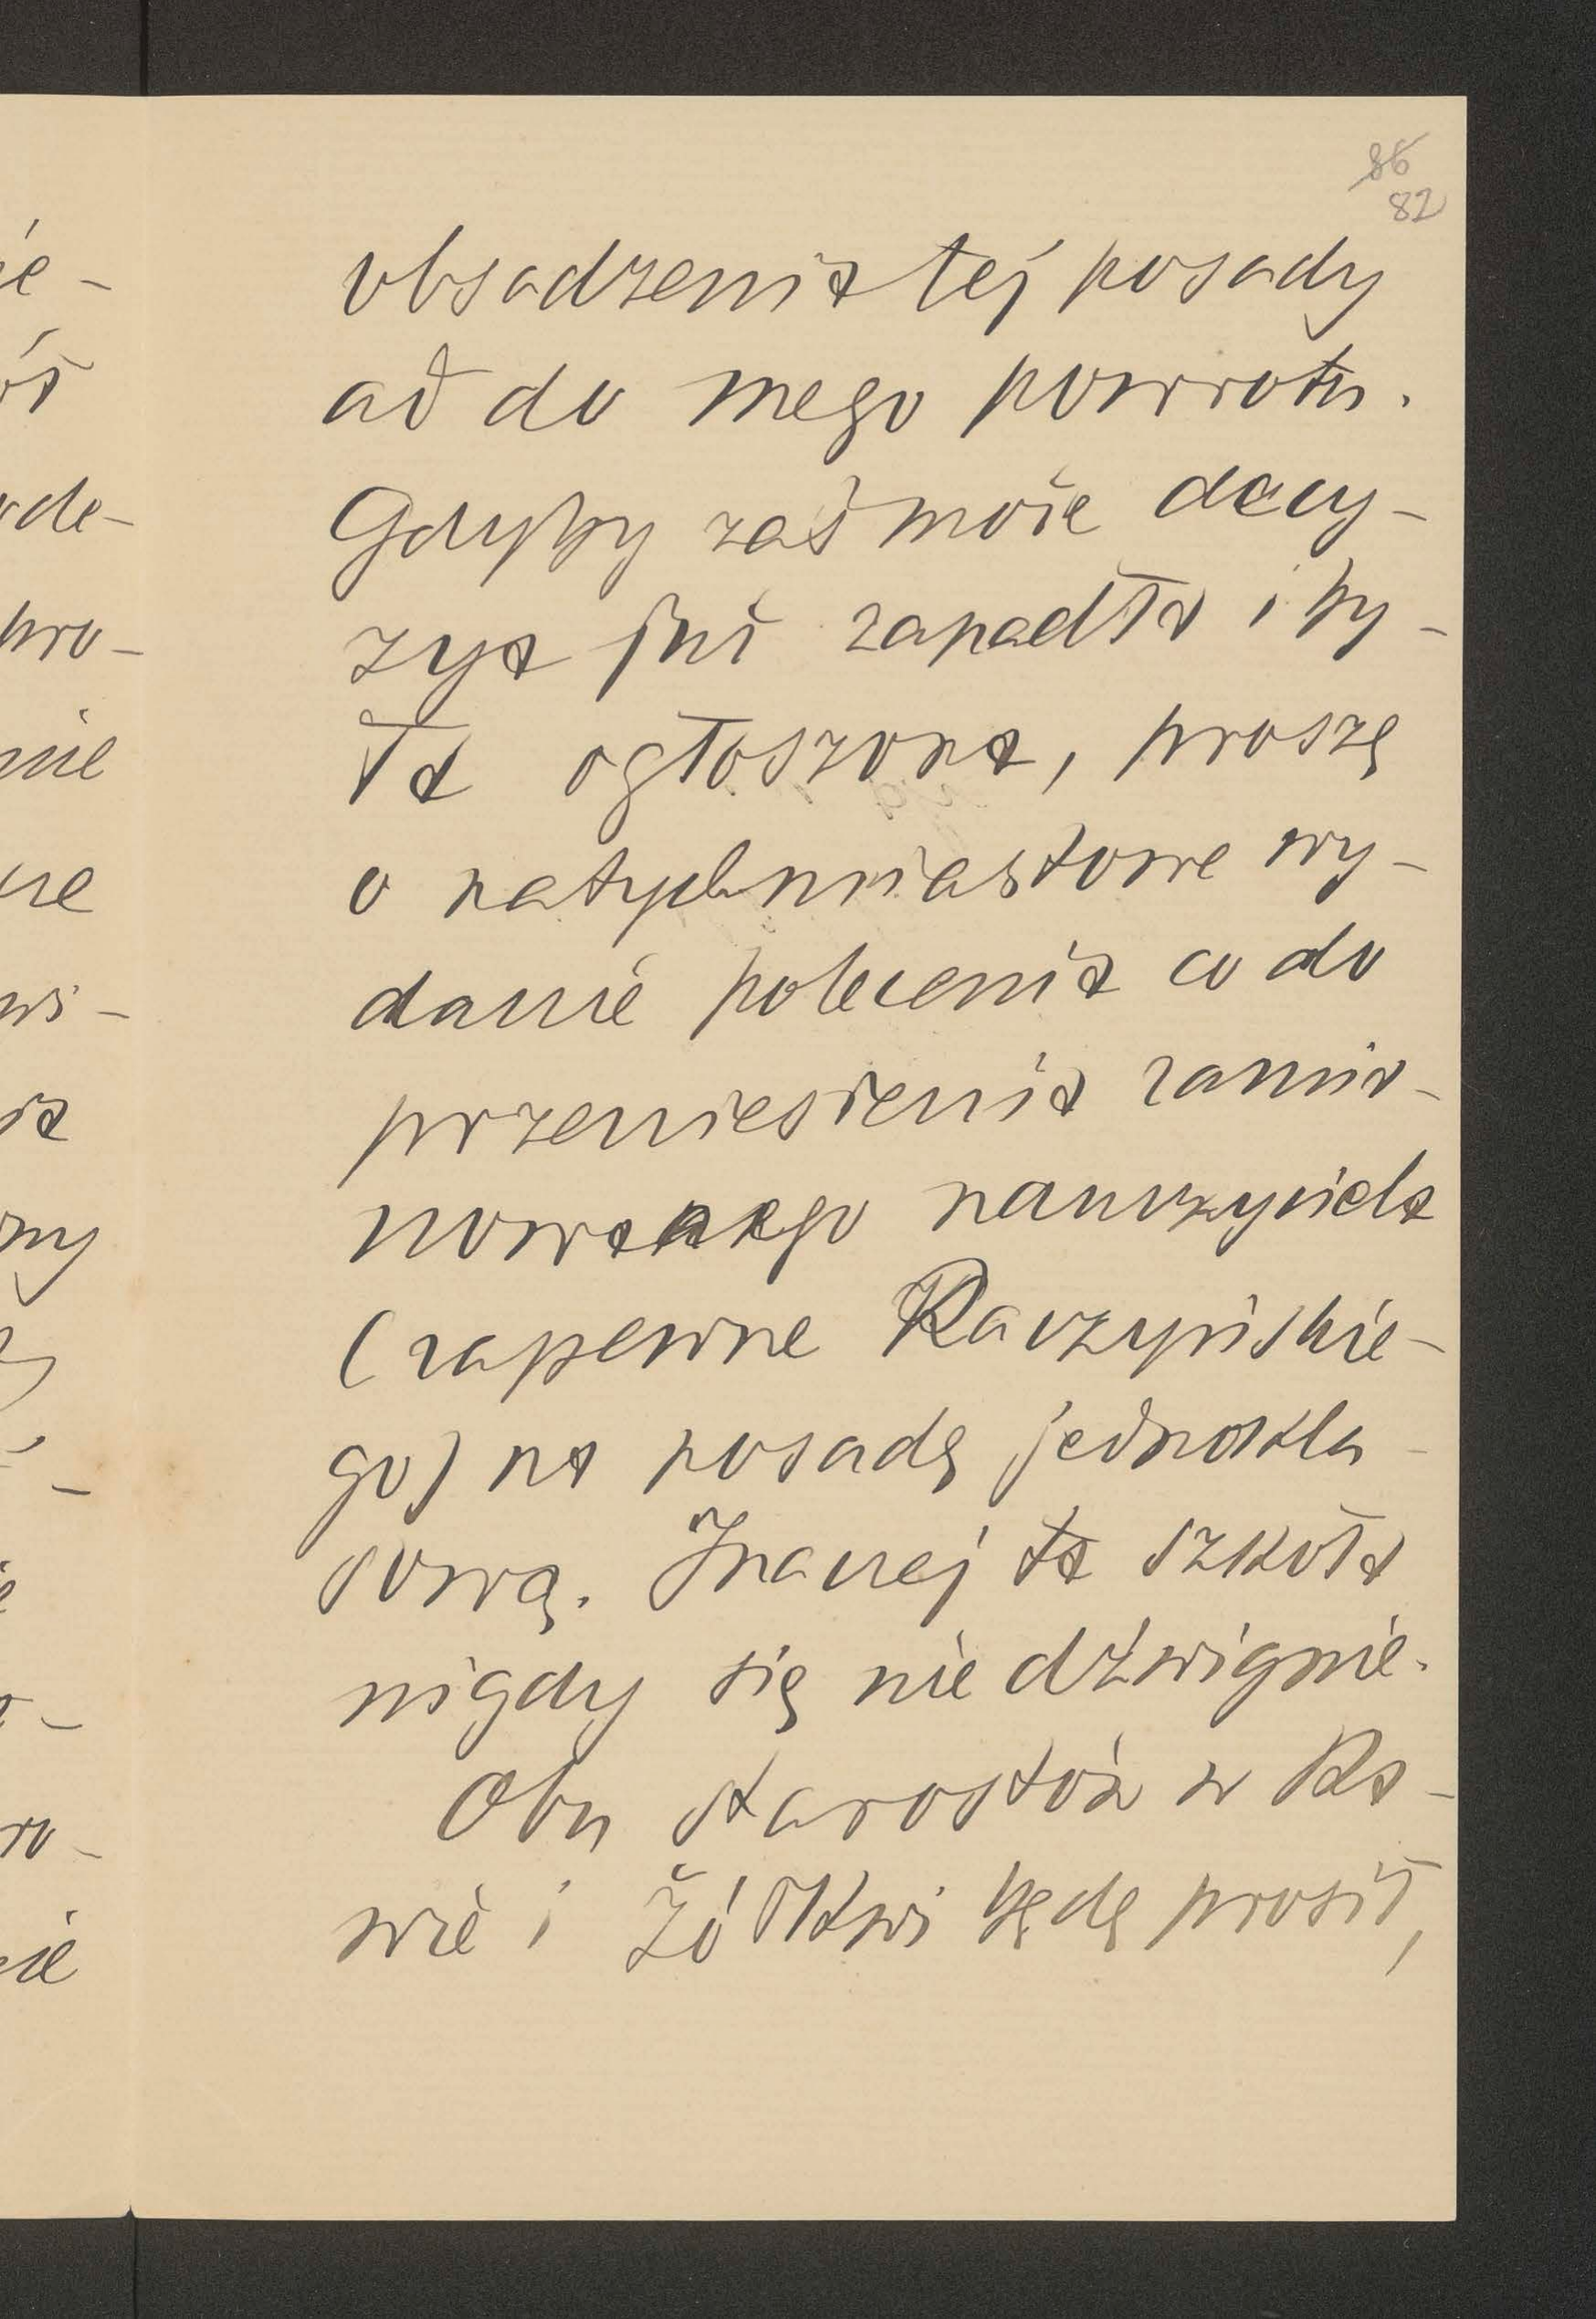 86
82
obsadzenia tej posady
aż do mego powrotu.
Gdyby zaś może decy-
zya już zapadła i by-
ła ogłoszona, proszę
o natychmiastowe wy-
danie polecenia co do
przeniesienia zamia-
nowanego nauczyciela
(zapewne Raczyńskie-
go) na posadę jednokla-
sową. Inaczej ta szkoła
nigdy się nie dźwignie.
Obu starostów w Ra-
wie i Żółkwi będę prosił,